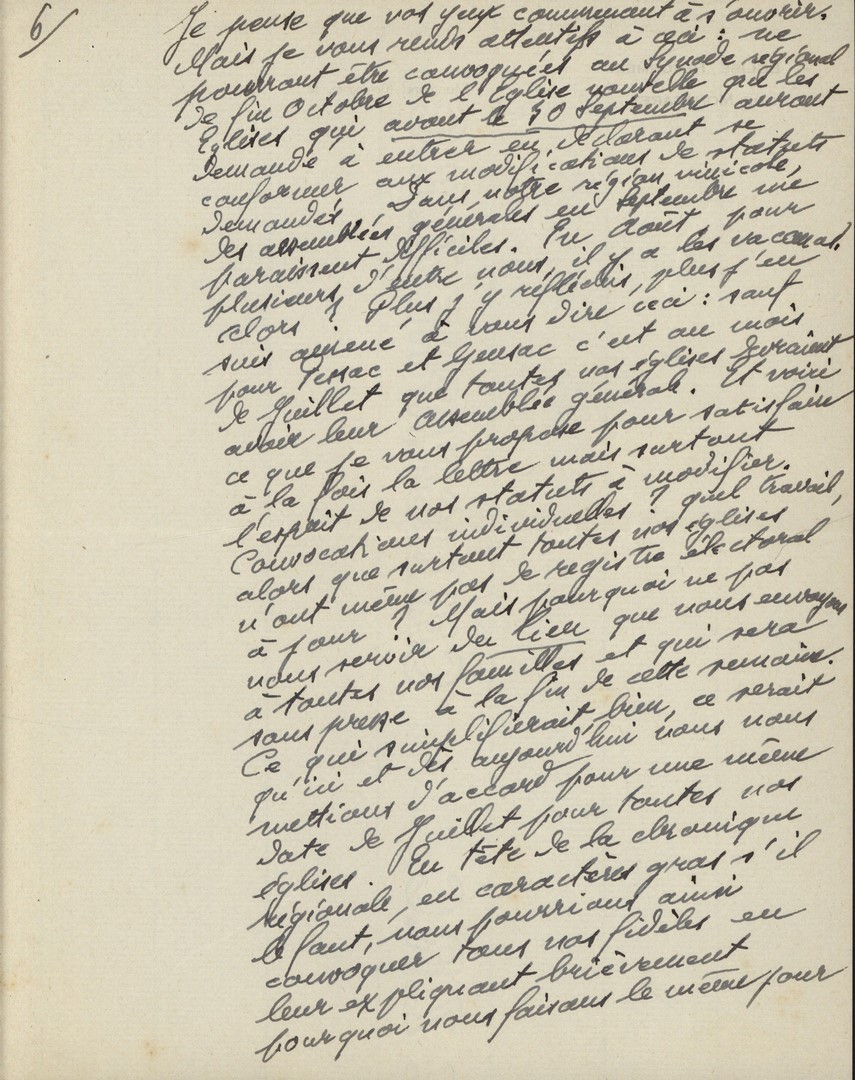 6/
Je pense que vos yeux commencent à s'ouvrir.
Mais je vous rends attentifs à ceci : ne
pourront être convoquées au Synode régional
de fin Octobre de l'Eglise nouvelle que les
Eglises qui avant le 30 Septembre auront
demandé à entrer en déclarant se
conformer aux modifications de statuts
demandés. Dans notre région vinicole,
des assemblées générales en Septembre me
paraissent difficiles. En Août pour
plusieurs d'entre nous, il y a les vacances.
Alors ? Plus j'y réfléchis, plus j'en
suis amené à vous dire ceci : sauf
pour Pessac et Gensac c'est au mois
de Juillet que toutes nos églises devraient
avoir leur assemblée générale. Et voici
ce que je vous propose pour satisfaire
à la fois la lettre mais surtout
l'esprit de nos statuts à modifier.
Convocations individuelles ? quel travail,
alors que surtout toutes nos églises
n'ont même pas de registre électoral
à jour ? Mais pourquoi ne pas
nous servir du lien que nous envoyons
à toutes nos familles et qui sera
sous presse à la fin de cette semaine.
Ce qui simplifierait bien, ce serait
qu'ici et dès aujourd'hui nous nous
mettions d'accord pour une même
date de Juillet pour toutes nos
églises. En tête de la chronique
régionale, en caractères gras s'il
le faut, nous pourrions ainsi
convoquer tous nos fidèles en
leur expliquant brièvement
pourquoi nous faisons le même jour